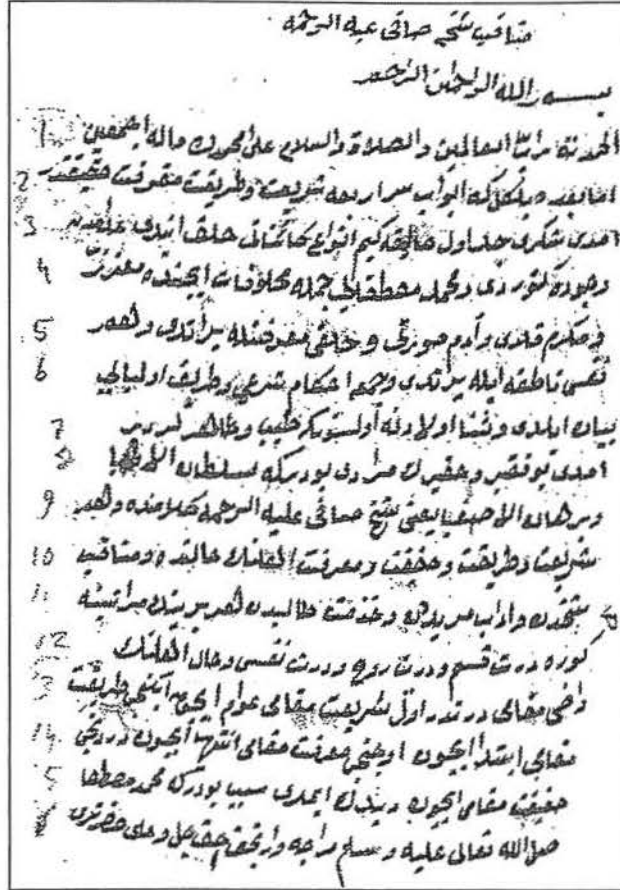 مناقب شيخ صافى عليه الرحمه
بسم الله الرحمن الرحيم
الحمد لله رب العالمين والصلاة والسلام على محمد واله اجمعين 1
اما بعده بلكل كه ابواب سرار بعه شريعت وطريقت معرفت حقيقتدر 2
امدى شكرى خداول خالقه كيم انواع كائناتى خلق اتدى 3
وجوده كتوردى ومحمد مصطفايى جمله مخلوقات ايچنده معزز 4
ومكرم قلدى وآدم صورتى وخلقى معرفتيله يراتدى وهم 5
نفسى ناطقه ايله يراتدى وجمع احكام شرعى وطريق اوليايى 6
بيان ايلدى وثنا اولادنه اولسونكم طيب وطاهرلردر 7
امدى بو فقير وحقيرك مرادى بودركه سلطان 8
وبرهان الاصفيا يعنى شيخ صافى عليه الرحمه كلامنده وهم 9
شريعت وطريقت وحقيقت ومعرفت اهلنك حالنده ومناقب 10
شيخدن واداب مريدان وخدمت طالبدن هر بريندن مراتبنه 11
كوره درت قسم ودرت روح ودرت نفسى وحال اهلنك 12
داخى مقامى درتدر اول شريعت مقامى عوام ايچون ايكنجى طريقت 13
مقامى ابتدا ايچون اوچنجى معرفت مقامى انتها ايچون دردنجى 14
حقيقت مقامى ايچون ديدك ايمدى سببا بودركه محمد مصطفا 5
صلى الله تعالى عليه وسلم معراجه واردقده حق جل وعلى حضرتدن